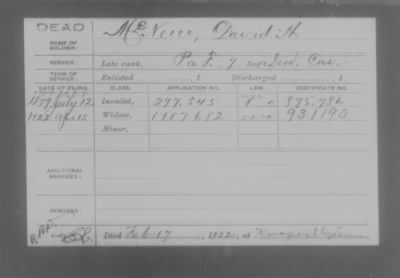 DEAD
NAME OF SOLDIER: McNeece, David H.
SERVICE: Late rank, Co F. 7 Reg't Ind. Cav.
TERM OF SERVICE: Enlisted , 1 Discharged , 1
DATE OF FILING. CLASS. APPLICATION NO. LAW. CERTIFICATE NO.
1879 July 12. Invalid, 297.545 875,786
1922 Apr 15 Widow, 1187682 931190
Minor,
ADDITIONAL SERVICES:
REMARKS:
Died Feb 17 , 1922, at Knoxville Tenn